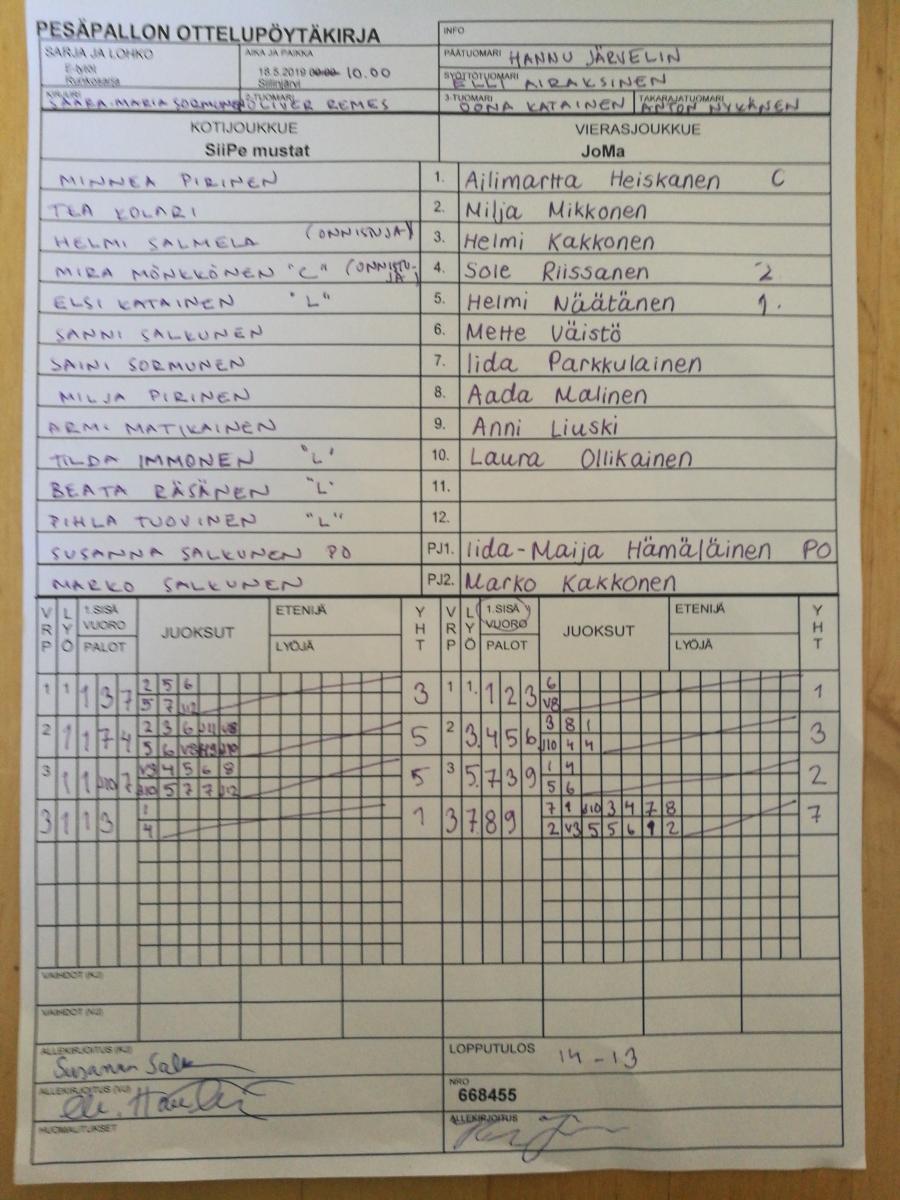 PESÄPALLON OTTELUPÖYTÄKIRJA
INFO
SARJA JA LOHKO
E-tytöt
Runkosarja
AIKA JA PAIKKA
18.5.2019 00:00 10.00
Siilinjärvi
PÄÄTUOMARI HANNU JÄRVELIN
SYÖTTÖTUOMARI ELLI AIRAKSINEN
KIRJURI SAARA-MARIA SORMUNEN
2-TUOMARI OLIVER REMES
3-TUOMARI OONA KATAINEN
TAKARAJATUOMARI ANTON NYKÄNEN
KOTIJOUKKUE
SiiPe mustat
VIERASJOUKKUE
JoMa
MINNEA PIRINEN 1. Ailimartta Heiskanen C
TEA KOLARI 2. Milja Mikkonen
HELMI SALMELA (ONNISTUJA) 3. Helmi Kakkonen
MIRA MÖNKKÖNEN "C" (ONNISTU-JA) 4. Sole Riissanen 2.
ELSI KATAINEN "L" 5. Helmi Näätänen 1.
SANNI SALKUNEN 6. Mette Väistö
SAINI SORMUNEN 7. Iida Parkkulainen
MILJA PIRINEN 8. Aada Malinen
ARMI MATIKAINEN 9. Anni Liuski
TILDA IMMONEN "L" 10. Laura Ollikainen
BEATA RÄSÄNEN "L" 11.
PIHLA TUOVINEN "L" 12.
SUSANNA SALKUNEN PO PJ1. Iida-Maija Hämäläinen PO
MARKO SALKUNEN PJ2. Marko Kakkonen
VRP LYÖ 1.SISÄ VUORO PALOT JUOKSUT ETENIJÄ LYÖJÄ YHT VRP LYÖ 1.SISÄ VUORO PALOT JUOKSUT ETENIJÄ LYÖJÄ YHT
1 1 1 3 7 2 5 6 3 1 1. 1 2 3 6 1
5 7 J12 V8
2 1 1 7 4 2 3 6 J11 V8 5 2 3. 4 5 6 3 8 1 3
5 6 V3 J10 J10 4 4
3 1 1 J10 7 V3 4 5 6 8 5 3 5. 7 3 9 1 4 2
J10 5 7 7 J12 5 6
3 1 1 3 1 1 3 7. 8 9 7 9 J10 3 4 7 8 7
4 2 V3 5 5 6 9 2
VAIHDOT (KJ)
VAIHDOT (VJ)
ALLEKIRJOITUS (KJ)
LOPPUTULOS 14-13
ALLEKIRJOITUS (VJ)
NRO
668455
HUOMAUTUKSET
ALLEKIRJOITUS